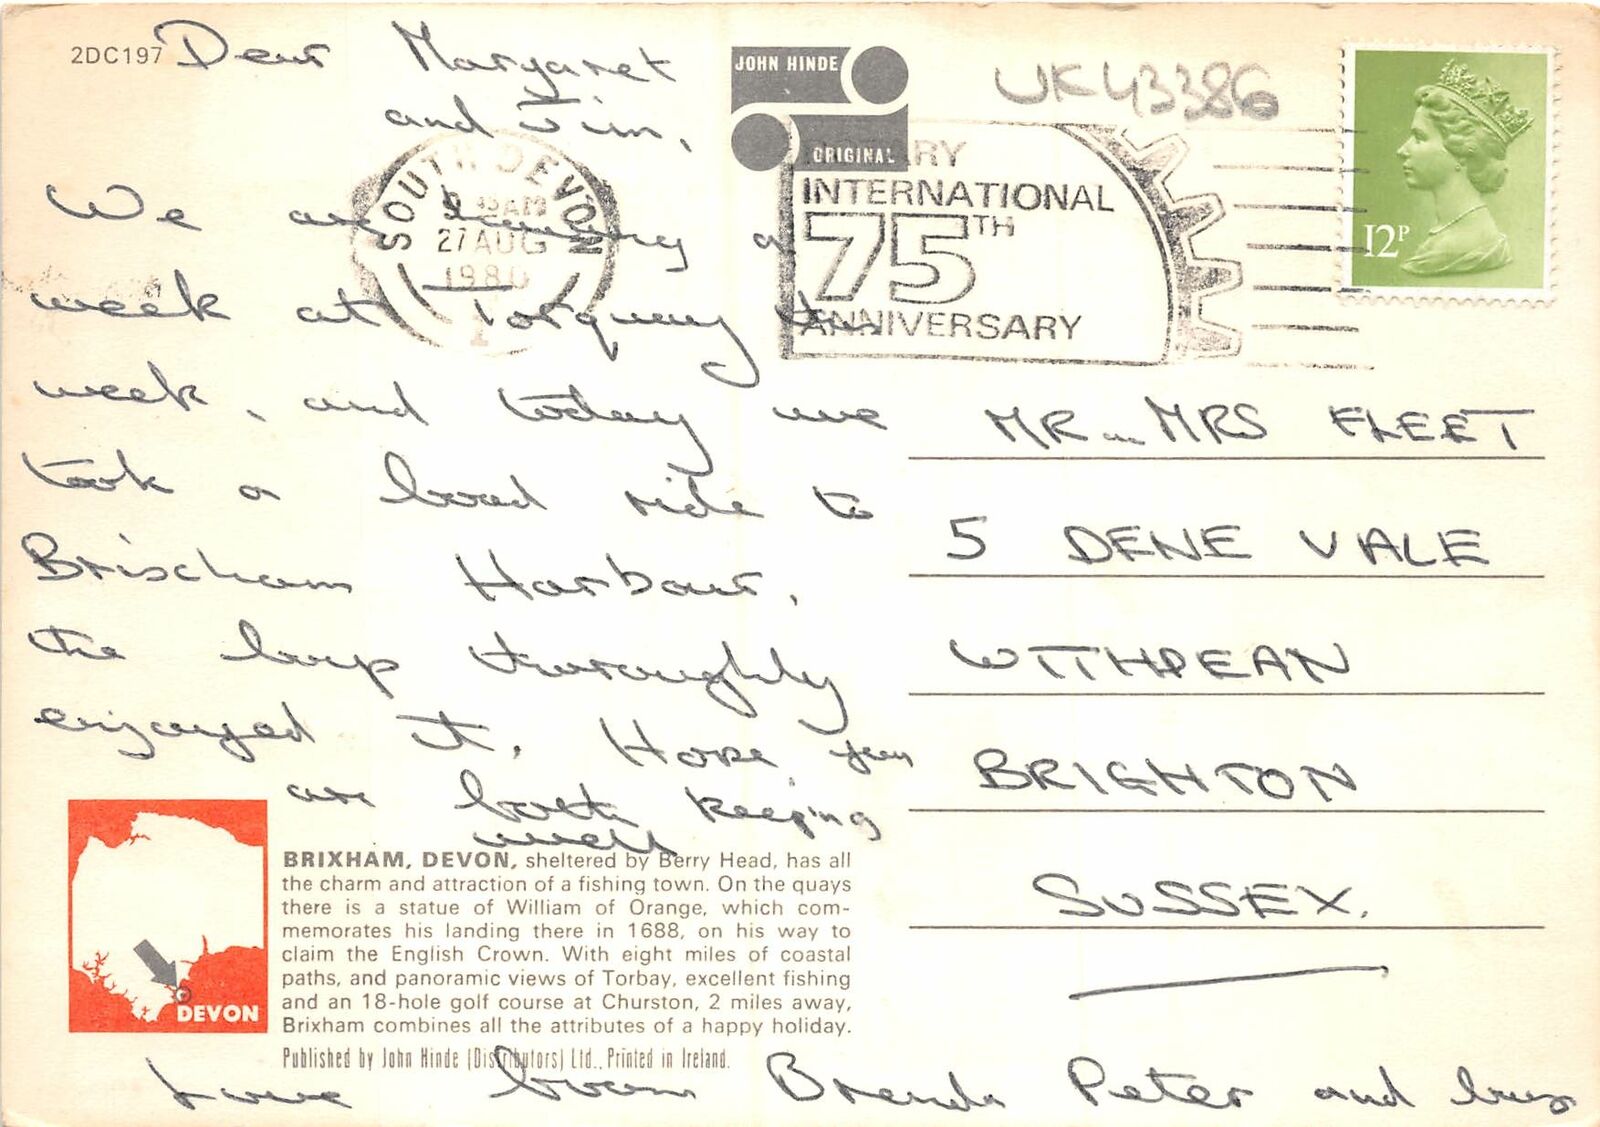 2DC197
Dear Margaret
and Jim,
We are having a
week at Torquay this
week, and today we
took a boad ride to
Brischam Harbour,
the boys thoroughly
enjoyed it. Hope you
are both keeping
well
Love from Brenda Peter and boys
JOHN HINDE
ORIGINAL
UK43386
SOUTH DEVON
45AM
27 AUG
1980
RY
INTERNATIONAL
75TH
ANNIVERSARY
12P
MR and MRS FLEET
5 DENE VALE
WITHDEAN
BRIGHTON
SUSSEX.
DEVON
BRIXHAM, DEVON, sheltered by Berry Head, has all
the charm and attraction of a fishing town. On the quays
there is a statue of William of Orange, which com-
memorates his landing there in 1688, on his way to
claim the English Crown. With eight miles of coastal
paths, and panoramic views of Torbay, excellent fishing
and an 18-hole golf course at Churston, 2 miles away,
Brixham combines all the attributes of a happy holiday.
Published by John Hinde (Distributors) Ltd., Printed in Ireland.